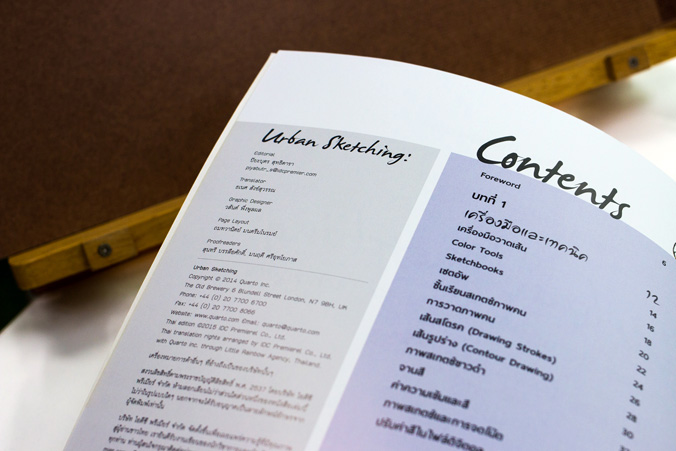 Urban Sketching:
Editorial
ปิยะบุตร สุทธิดารา
piyabutr_s@idcpremier.com
Translator
ธเนศ สังข์สุวรรณ
Graphic Designer
วสันต์ พึ่งพูลผล
Page Layout
Proofreaders
Urban Sketching
Copyright © 2014 Quarto Inc.
The Old Brewery 6 Blundell Street London, N7 9BH, UK
Phone: +44 (0) 20 7700 6700
Fax: +44 (0) 20 7700 8066
Website: www.quarto.com Email: quarto@quarto.com
Thai edition ©2015 IDC Premier Co., Ltd.
Thai translation rights arranged by IDC Premier Co., Ltd.
with Quarto Inc. through Little Rainbow Agency, Thailand
เครื่องหมายการค้าอื่นๆ ที่อ้างถึงเป็นของบริษัทนั้นๆ
Contents
Foreword 6
บทที่ 1
เครื่องมือและเทคนิค 12
เครื่องมือวาดเส้น 14
Color Tools 16
Sketchbooks 18
เซตอัพ 20
ชั้นเรียนสเกตช์ภาพคน 22
การวาดภาพคน 24
เส้นสโตรก (Drawing Strokes) 26
เส้นรูปร่าง (Contour Drawing) 28
ภาพสเกตช์ขาวดำ 30
จานสี
ค่าความเข้มและสี
ภาพสเกตช์และการจดโน้ต
ปรับค่าสีในไฟล์ดิจิตอล